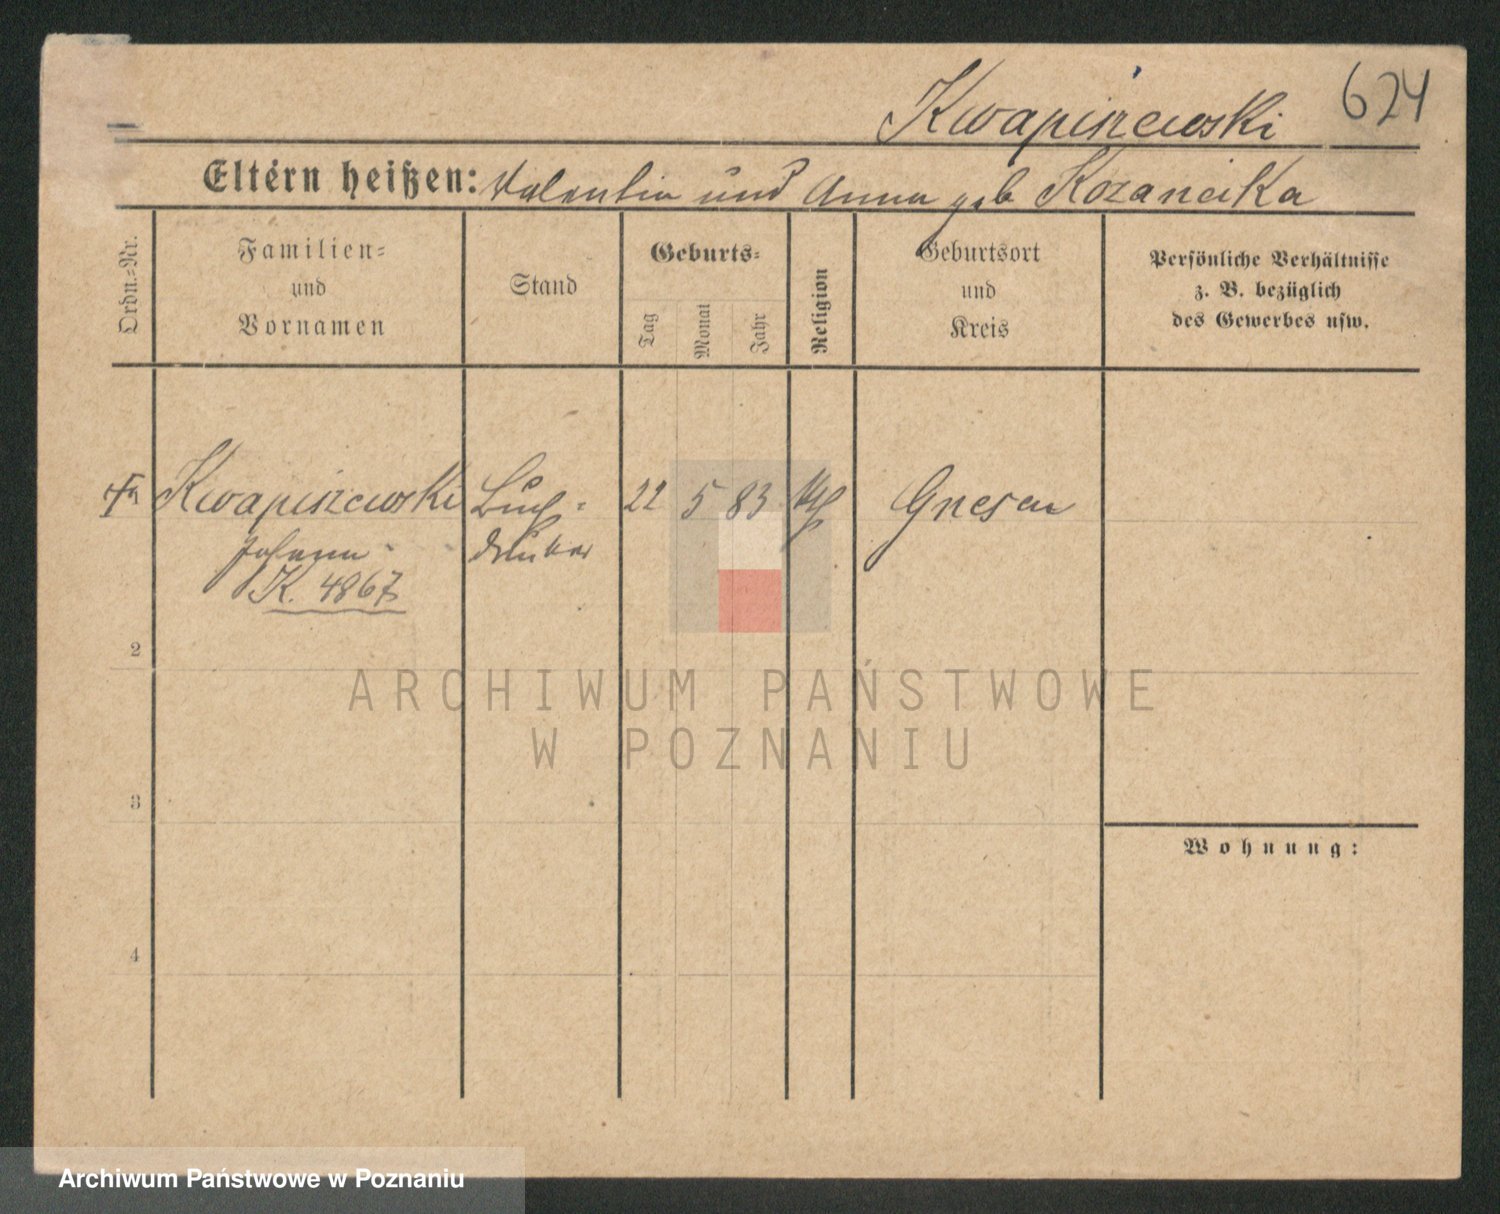 Kwapiszewski 624
Eltern heißen: Valentin und Anna geb Kozancika
Ordn.=Nr.
Familien=
und
Vornamen
Stand
Geburts=
Tag
Monat
Jahr
Religion
Geburtsort
und
Kreis
Persönliche Verhältnisse
z. B. bezüglich
des Gewerbes usw.
Kwapiszewski Buch= 22 5 83 kth Gnesen
Johann drucker
K. 4867
2
3
4
Wohnung:
ARCHIWUM PAŃSTWOWE
W POZNANIU
Archiwum Państwowe w Poznaniu